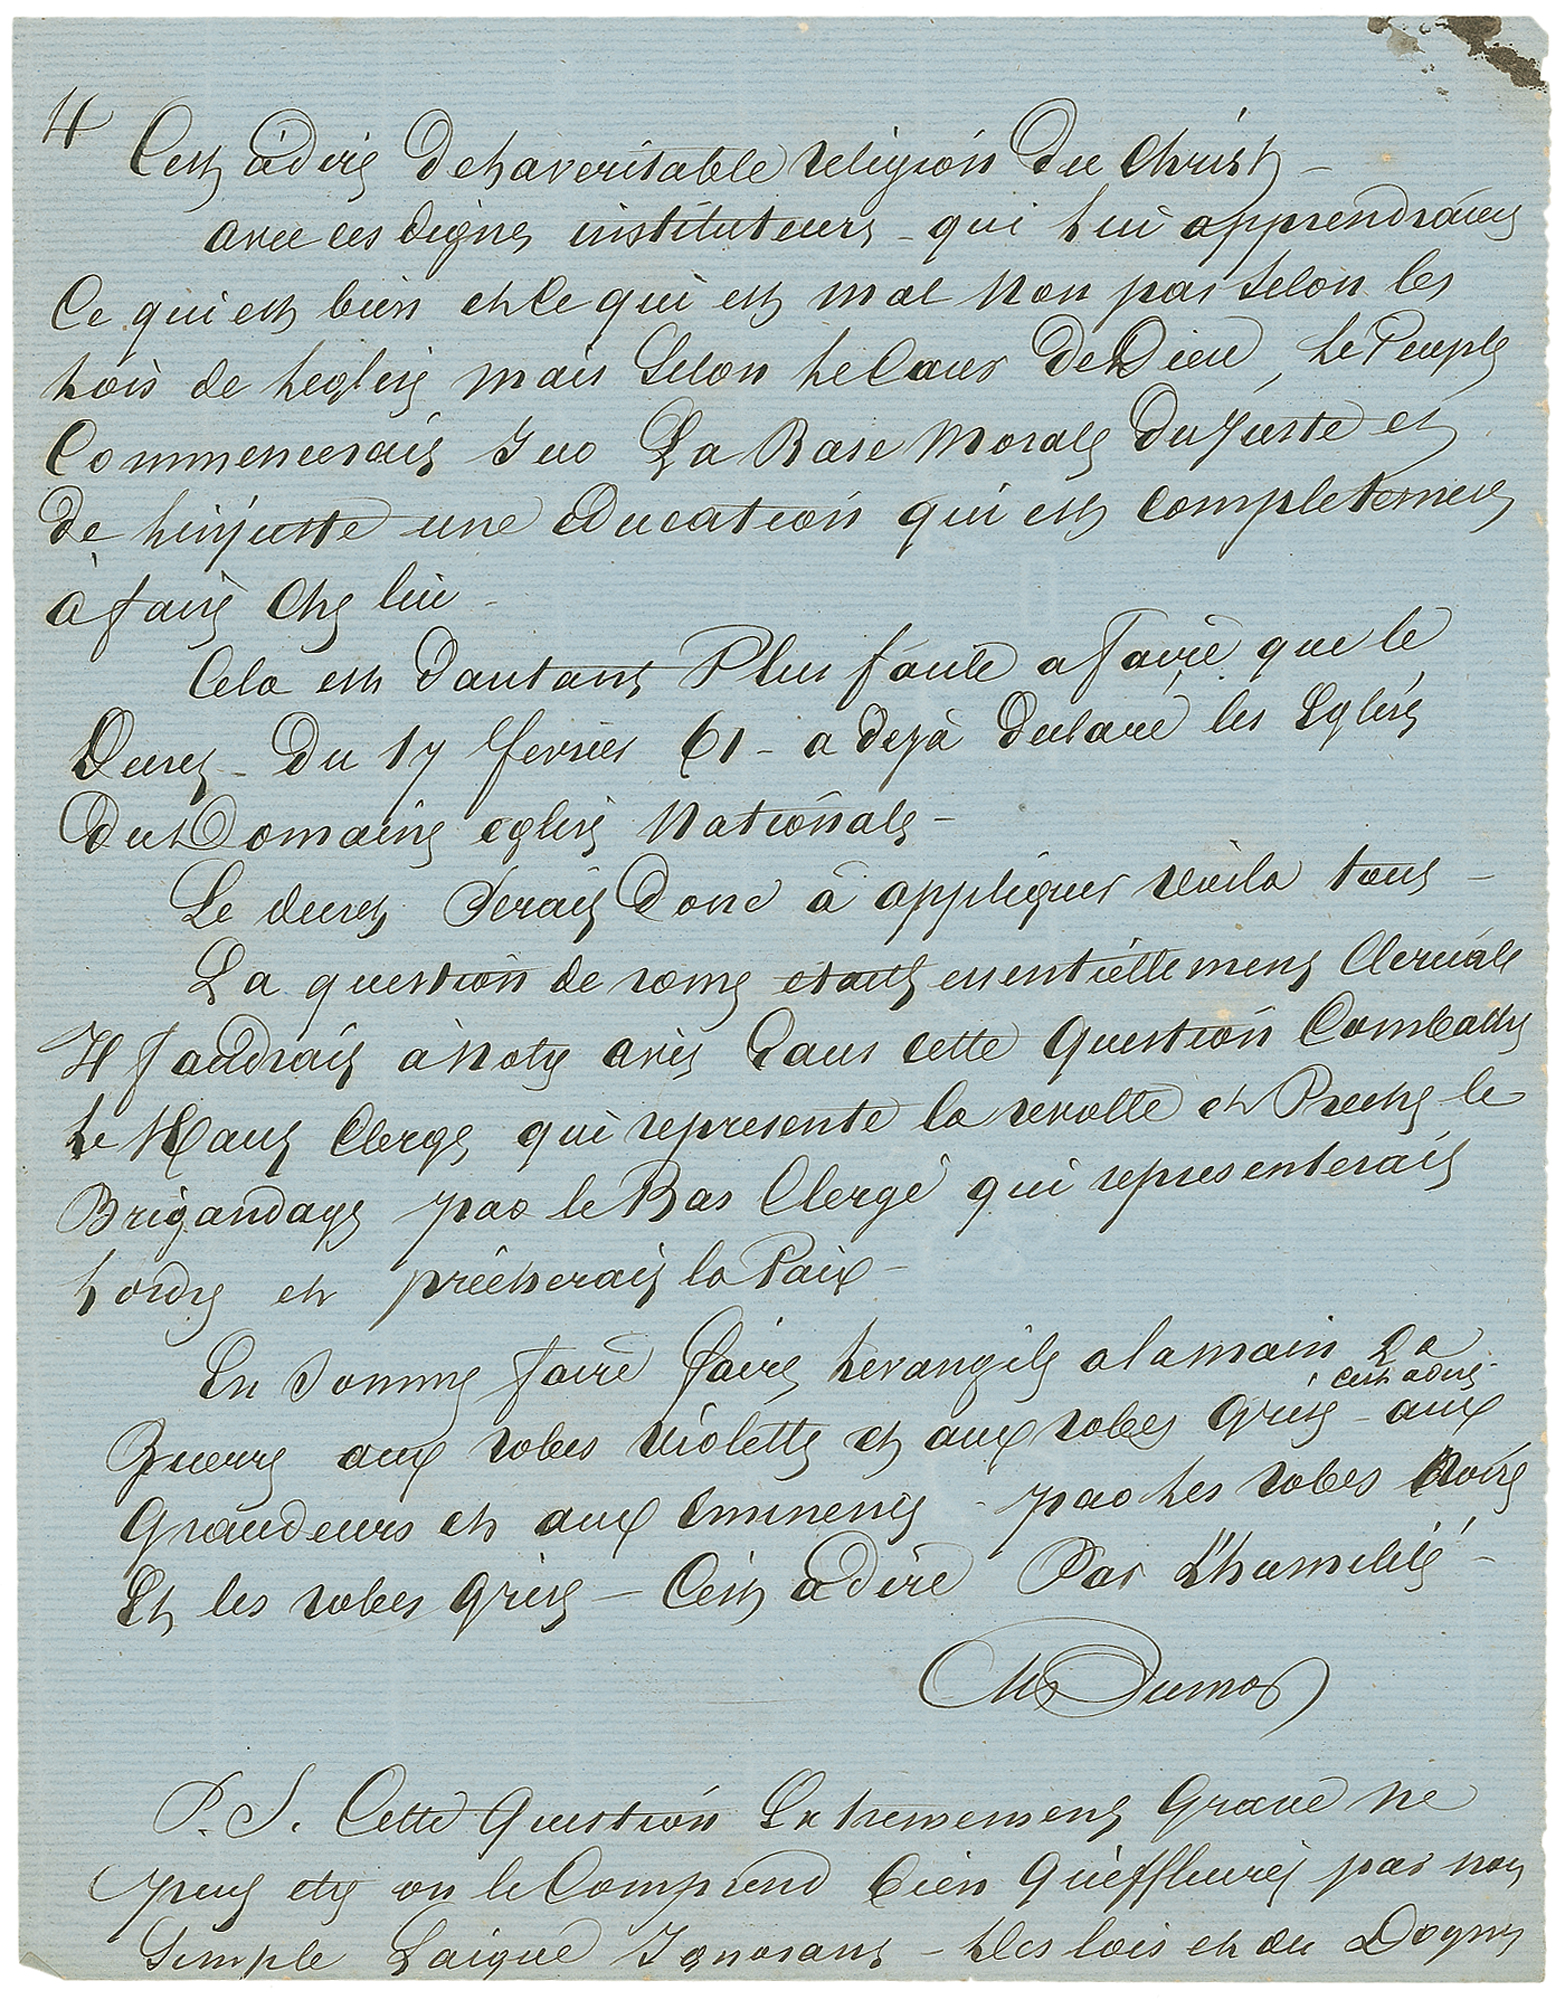 4
C'est à dire de la veritable religion du Christ –
avec ces dignes instituteurs – qui lui apprendraient
Ce qui est bien et ce qui est mal non pas selon les
lois de leglise mais selon le Cœur de Dieu, le Peuple
Commencerait sur La Base Morale du juste et
de linjuste une education qui est completement
à faire chez lui –
Cela est dautant Plus facile a faire que le
Decret – du 17 fevrier 61 – a dejà declaré les Eglises
du Domaine eglise Nationale –
Le decret serait donc à appliquer voila tout –
La question de rome étant essentiellement Clericale
Il faudrait à notre avis dans cette question Combattre
le Haut Clergé qui represente la revolte et Preche le
Brigandage par le Bas Clergé qui representerait
lordre et prêcherait la Paix –
En somme faire faire levangile a la main La
c'est a dire –
Guerre aux robes violettes et aux robes grises – aux
Grandeurs et aux Eminences – par les robes Noires
Et les robes grises – C'est a dire Par L'humilité –
Alex Dumas
P.S. Cette question Extremement grave ne
peut etre on le Comprend bien qu'effleurée par nous
Simple Laique Ignorant – des lois et du Dogme